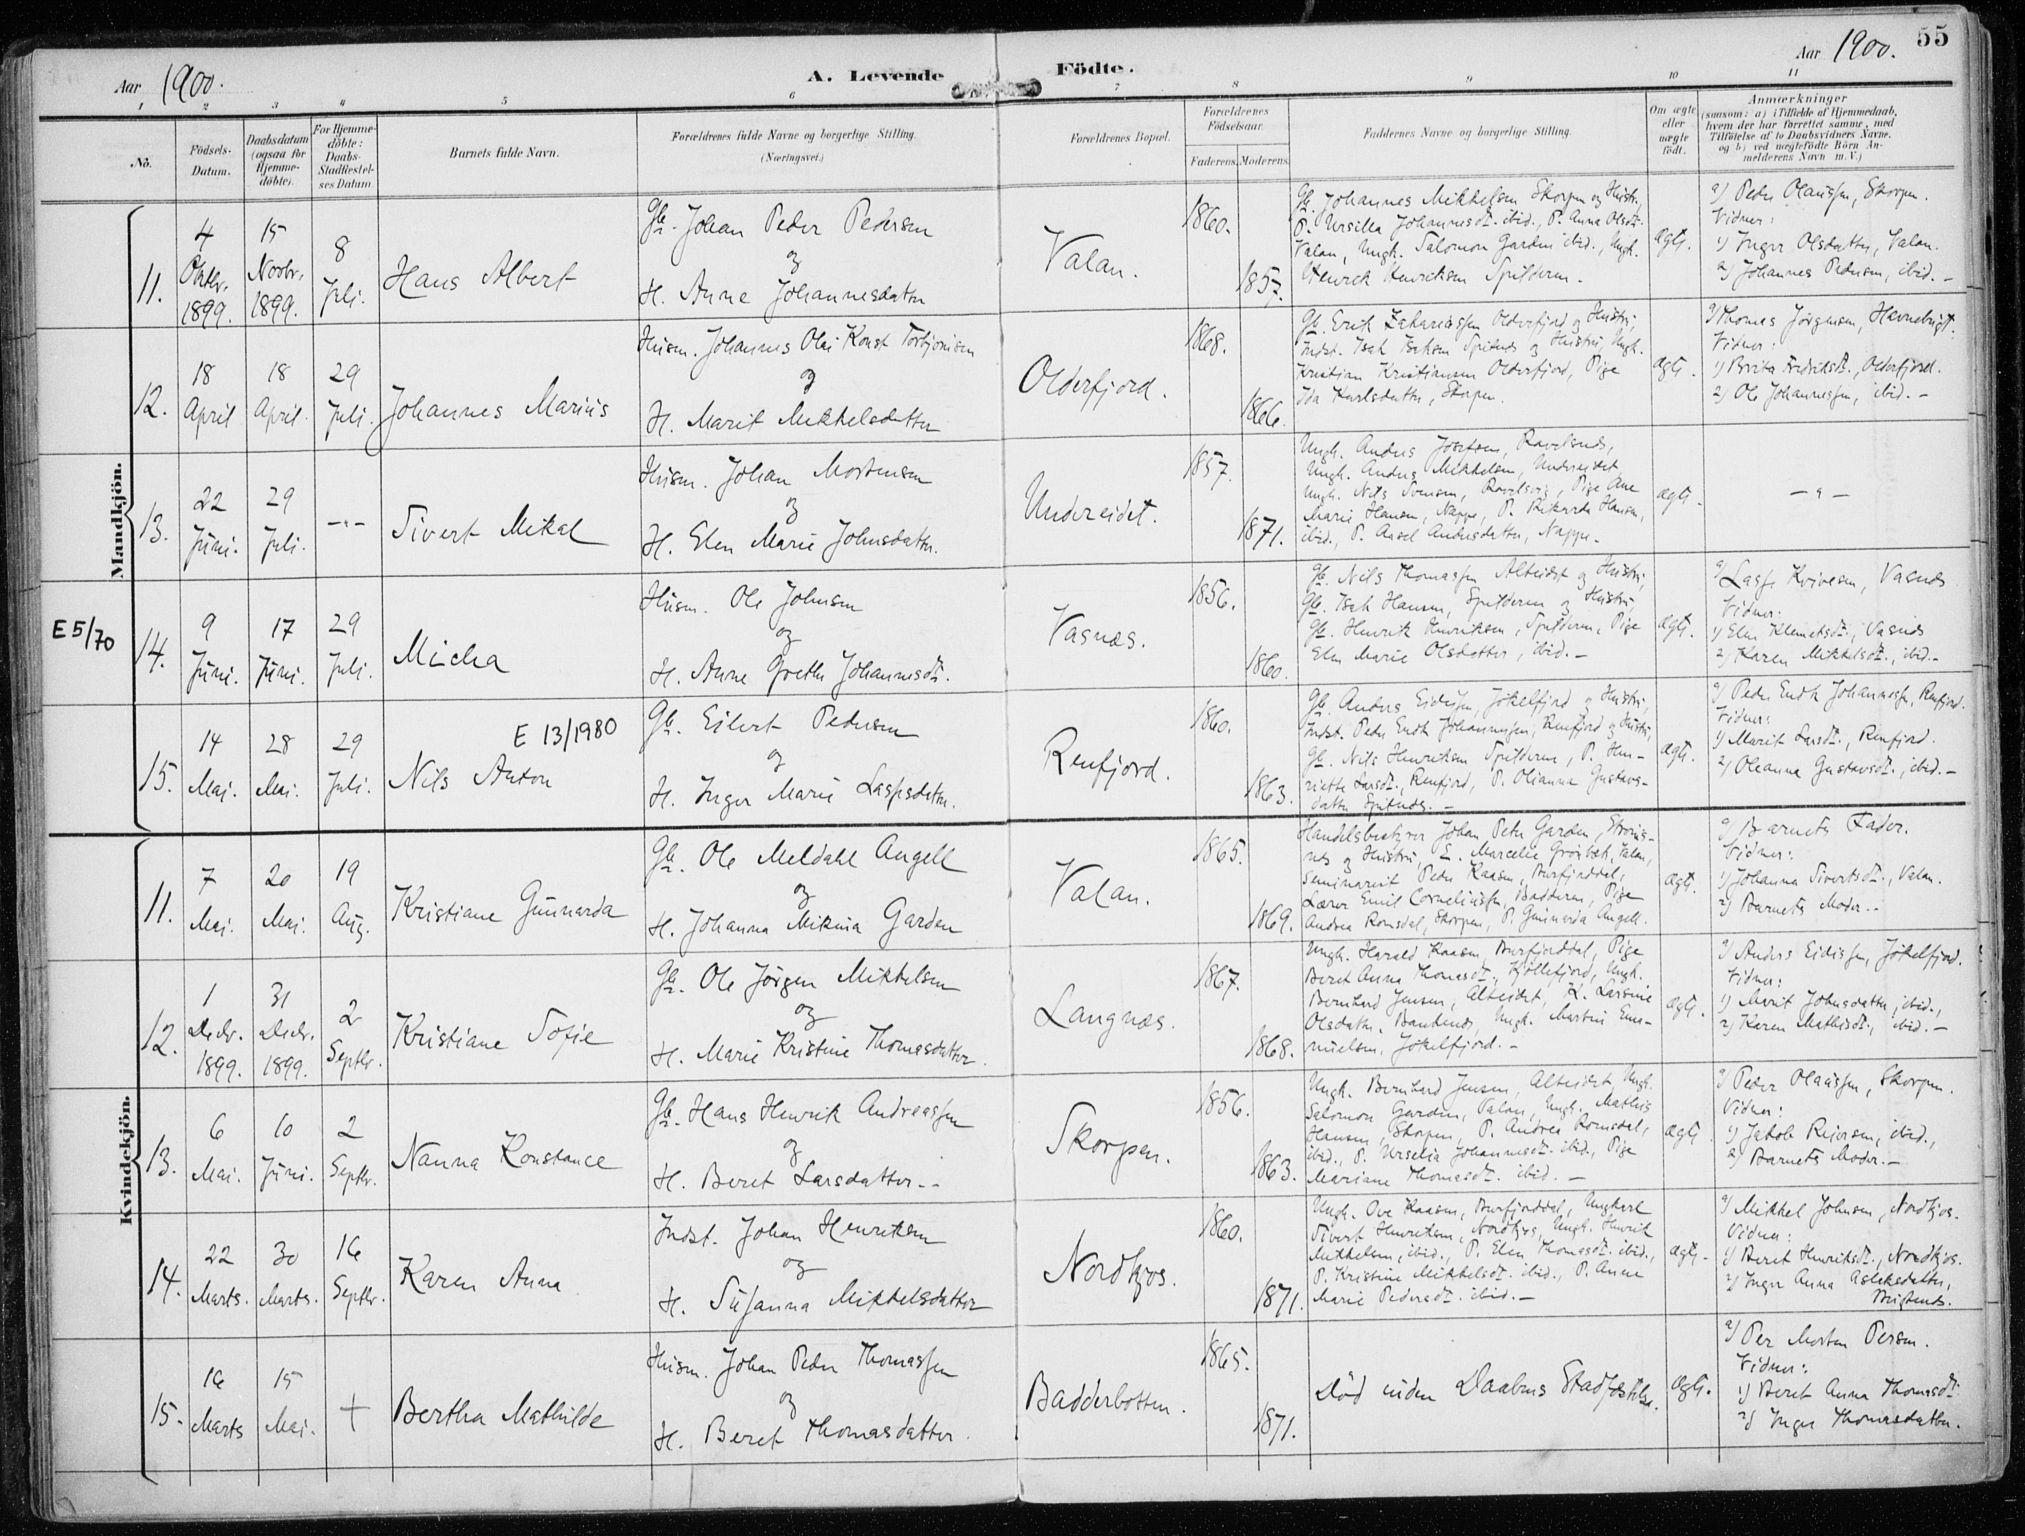 55
Aar 1900.
A. Levende Födte.
Aar 1900.
1 2 3 4 5 6 7 8 9 10 11
No.
Födsels-Datum.
Daabsdatum (ogsaa for Hjemme-döbte).
For Hjemme-döbte: Daabs-Stadfæstel-ses Datum.
Barnets fulde Navn.
Forældrenes fulde Navne og borgerlige Stilling.
(Næringsvei.)
Forældrenes Bopæl.
Forældrenes Födselsaar.
Faderens. Moderens.
Faddernes Navne og borgerlige Stilling.
Om ægte eller uægte födt.
Anmærkninger
(saasom: a) i Tilfælde af Hjemmedaab, hvem der har forrettet samme, med Tilföielse af to Daabsvidners Navne, og b) ved uægtefödte Börn An-melderens Navn m. V.)
Mandkjön.
11.
4 Oktbr. 1899.
15 Novbr. 1899.
8 Juli.
Hans Albert
Gb. Johan Peder Pedersen
og
H. Anne Johannesdatter
Valan.
1860.
1857.
Gb. Johannes Mikkelsen Skorpen og Hustru,
P. Ursilla Johannesdt. ibid., P. Anna Olsdt.
Valan, Ungk. Salomon Garden ibid., Ungk.
Henrick Henriksen Spilderen.
ægte.
a) Peder Olaussen, Skorpen.
Vidner:
1) Inger Olsdatter, Valan.
2) Johannes Pedersen, ibid. –
12.
18 April
18 April.
29 Juli.
Johannes Marius
Husm. Johannes Olai Konst Torbjörnsen
og
H. Marit Mikkelsdatter
Olderfjord.
1868.
1866.
Gb. Erik Zakariassen Olderfjord og Hustru,
Indst. Isak Isaksen Spitnes og Hustru, Ungk.
Kristian Kristiansen Olderfjord, Pige
Ida Karlsdatter, Skorpen.
ægte.
a) Thomas Jörgensen,
Vidner:
1) Brita Fredriksdt., Olderfjord.
2) Ole Johannessen, ibid. –
13.
22 Juni.
29 Juli.
–"–
Sivert Mikal
Husm. Johan Mortensen
og
H. Elen Marie Johnsdatter.
Undereidet.
1857.
1871.
Ungk. Anders Josefsen,
Ungk. Anders Mikkelsen, Undereidet,
Ungk. Nils Svensen, Pige Ane
Marie Hansen, Nappen, P. Rikarda Hansen,
ibid., P. Andersdatter, Nappen.
ægte.
–"–
E 5/70
14.
9 Juni.
17 Juni.
29 Juli.
Micha
Husm. Ole Johnsen
og
H. Anne Grethe Johannesdt.
Vasnæs.
1856.
1860.
Gb. Nils Thomassen Alteidet og Hustru,
Gb. Isak Hansen, Spilderen og Hustru,
Gb. Henrik Henriksen, Spilderen, Pige
Elen Marie Olsdatter, ibid. –
ægte.
a) Lasse Vasnes
Vidner:
1) Elen Klemetsdt., Vasnes
2) Karen Mikkelsdt., ibid. –
15.
14 Mai.
28 Mai.
29 Juli.
E 13/1980
Nils Anton
Gb. Eilert Pedersen
og
H. Inger Marie Lassesdatter.
Renfjord.
1860.
1863.
Gb. Anders Eidissen, Jökelfjord og Hustru,
Indst. Peder Endk Johannessen, Renfjord og Hustru,
Gb. Nils Henriksen Spilderen, P. Hen-
riette Larsdt., Renfjord, P. Olianna Gustavs-
datter Spitnes. –
ægte.
a) Peder Endk Johannessen, Renfjord.
Vidner:
1) Marit Larsdt., Renfjord.
2) Oleanna Gustavsdt., ibid. –
Kvindekjön.
11.
7 Mai.
20 Mai.
19 Aug.
Kristiane Gunnarda
Gb. Ole Meldahl Angell
og
H. Johanna Mikina Garden
Valan.
1865.
1869.
Handelsbestyrer Johan Peter Garden, Ströms-
nes og Hustru, E. Marcelie Grönbæk, Valan,
Seminarist Peder Kaasen, Burfjorddal,
Lærer Emil Corneliussen, Badderen, Pige
Andrea Romsdal, Skorpen, P. Gunnarda Angell.
ægte.
a) Barnets Fader.
Vidner:
1) Johanna Sivertsdt., Valan.
2) Barnets Moder. –
12.
1 Decbr. 1899.
31 Decbr. 1899.
2 Septbr.
Kristiane Sofie
Gb. Ole Jörgen Mikkelsen
og
H. Marie Kristine Thomasdatter.
Langnæs.
1867.
1868.
Ungk. Harald Kaasen, Burfjorddal, Pige
Beret Anna Thomasdt., Kjöllefjord, Ungk.
Bernhard Jensen, Alteidet, K. Larsine
Olsdatter, Ungk. Martin Ema-
nuelsen, Jökelfjord. –
ægte.
a) Anders Eidissen, Jökelfjord.
Vidner:
1) Marit Johnsdatter, ibid.,
2) Karen Mathisdt., ibid. –
13.
6 Mai.
10 Juni.
2 Septbr.
Nanna Konstance
Gb. Hans Henrik Andreassen
og
H. Beret Larsdatter. –
Skorpen.
1856.
1863.
Ungk. Bernhard Jensen, Alteidet, Ungk.
Salomon Garden, Valan, Ungk. Mathis
Hansen, Skorpen, P. Andrea Romsdal,
ibid., P. Urselia Johannesdt. ibid., Pige
Mariane Thomasdt. ibid. –
ægte.
a) Peder Olaussen, Skorpen.
Vidner:
1) Jakob Reiersen, ibid.,
2) Barnets Moder. –
14.
22 Marts.
30 Marts.
16 Septbr.
Karen Anna
Indst. Johan Henriksen
og
H. Susanna Mikkelsdatter
Nordkjos.
1860.
1871.
Ungk. Ove Kaasen, Burfjorddal, Ungkarl
Sivert Henriksen, Nordkjos, Ungk. Henrik
Mikkelsen, ibid., P. Elen Thomasdt. ibid.,
P. Kristine Mikkelsdt. ibid., P. Anne
Marie Pedersdt. ibid. –
ægte.
a) Mikkel Johnsen, Nordkjos.
Vidner:
1) Beret Henriksdt., Nordkjos.
2) Inger Anna Aslaksdatter,
15.
16 Marts
15 Mai.
+
Bertha Mathilde
Husm. Johan Peder Thomassen
og
H. Beret Thomasdatter.
Badderbotten.
1865.
1871.
Död uden Daabens Stadfæstelse.
ægte.
a) Per Morten Persen.
Vidner:
1) Beret Anna Thomasdt.
2) Inger Thomasdatter.